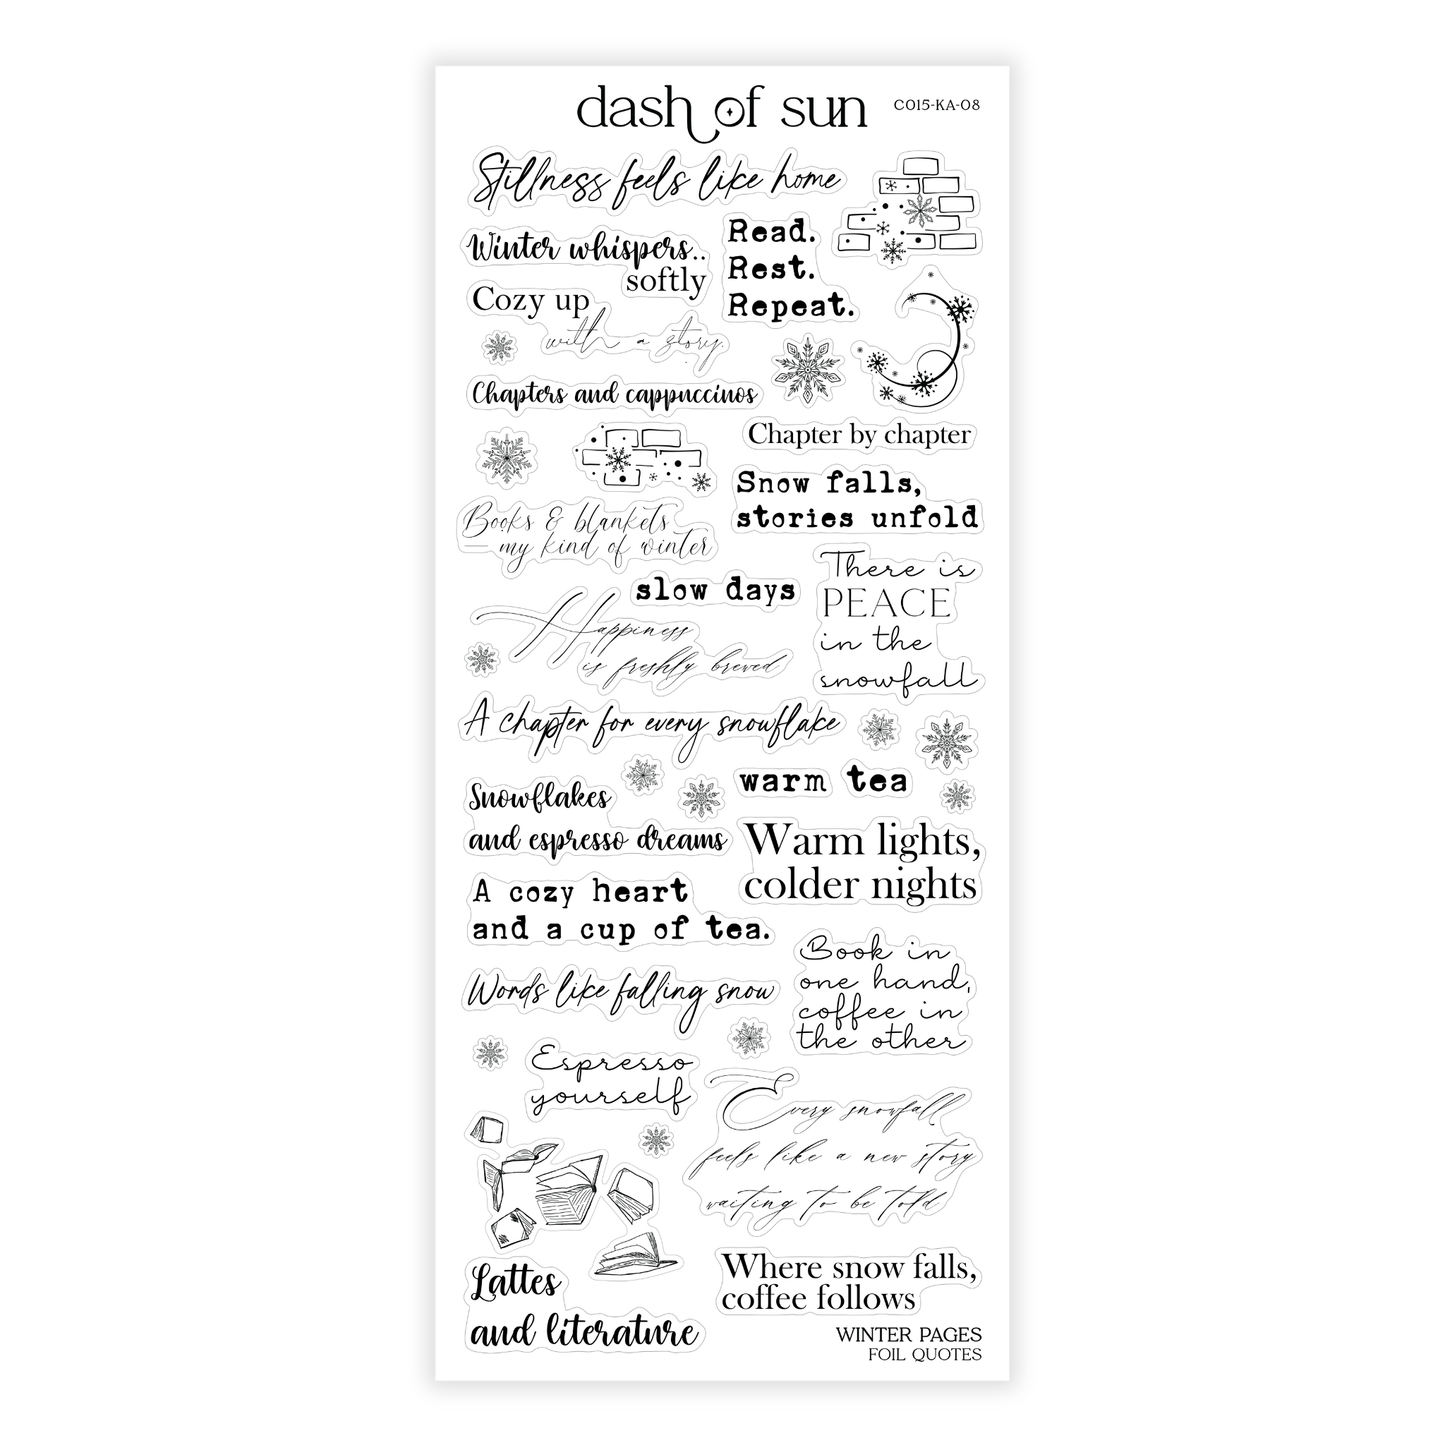 dash of sun
C015-KA-08
Stillness feels like home
Winter whispers..
softly
Read.
Rest.
Repeat.
Cozy up
with a story.
Chapters and cappuccinos
Chapter by chapter
Snow falls,
stories unfold
Books & blankets
— my kind of winter
slow days
There is
PEACE
in the
snowfall
Happiness
is freshly brewed
A chapter for every snowflake
warm tea
Snowflakes
and espresso dreams
Warm lights,
colder nights
A cozy heart
and a cup of tea.
Book in
one hand,
coffee in
the other
Words like falling snow
Espresso
yourself
Every snowfall
feels like a new story
waiting to be told
Lattes
and literature
Where snow falls,
coffee follows
WINTER PAGES
FOIL QUOTES